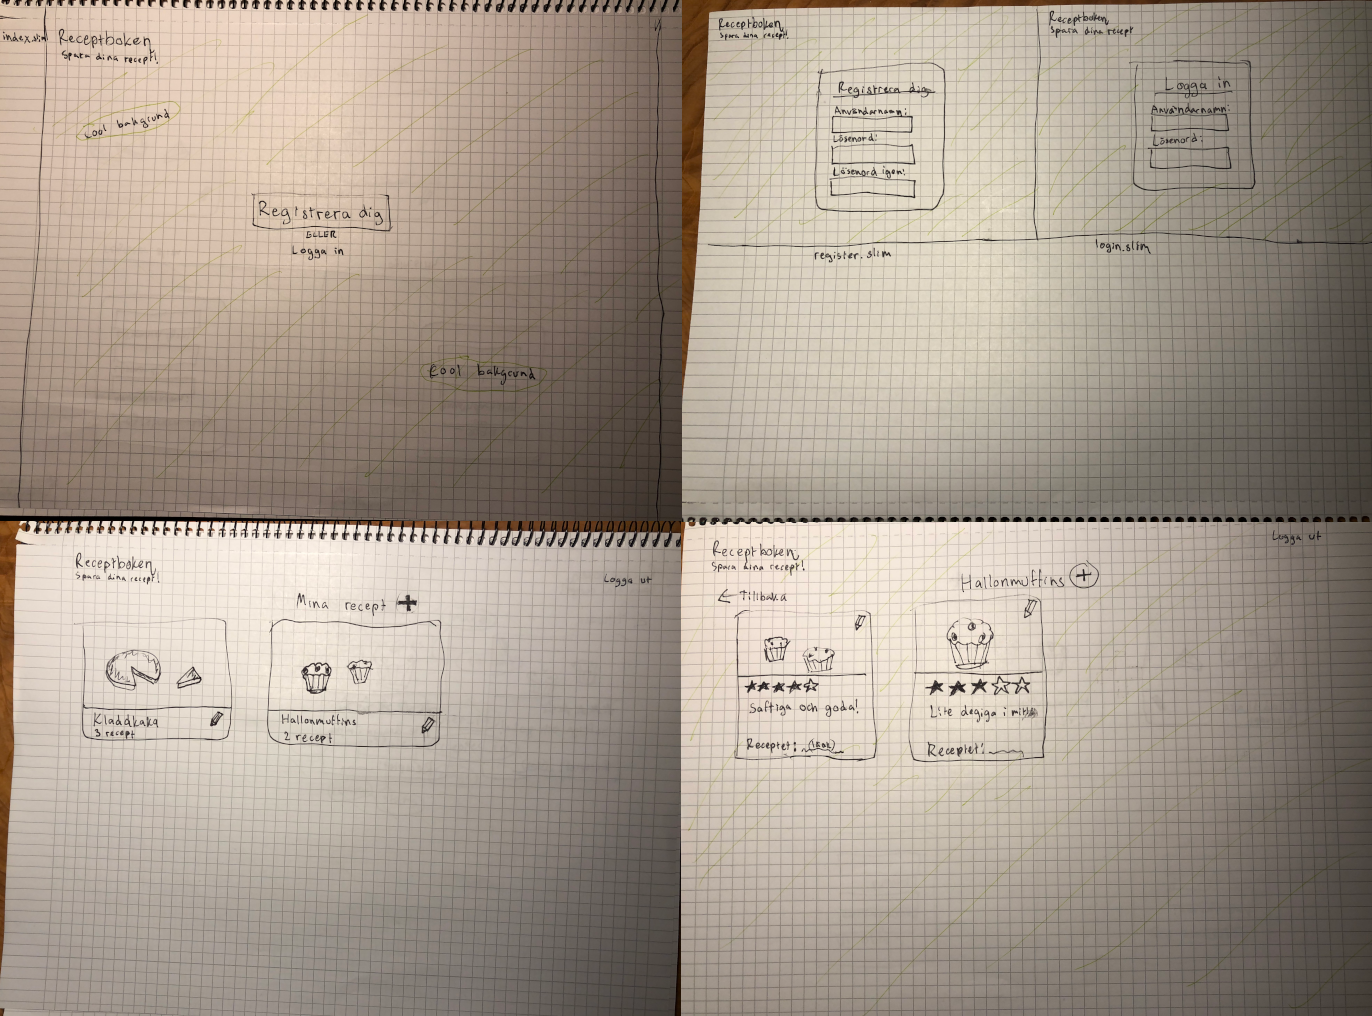 index.slim
Receptboken
Spara dina recept!
cool bakgrund
Registrera dig
ELLER
Logga in
cool bakgrund
Receptboken
Spara dina recept!
Registrera dig
Användarnamn:
Lösenord:
Lösenord igen:
register.slim
Receptboken
Spara dina recept
Logga in
Användarnamn:
Lösenord:
login.slim
Receptboken
Spara dina recept!
Logga ut
Mina recept +
Kladdkaka
3 recept
Hallonmuffins
2 recept
Receptboken
Spara dina recept!
Logga ut
← Tillbaka
Hallonmuffins +
Saftiga och goda!
Receptet:
Lite degiga i
Receptet: